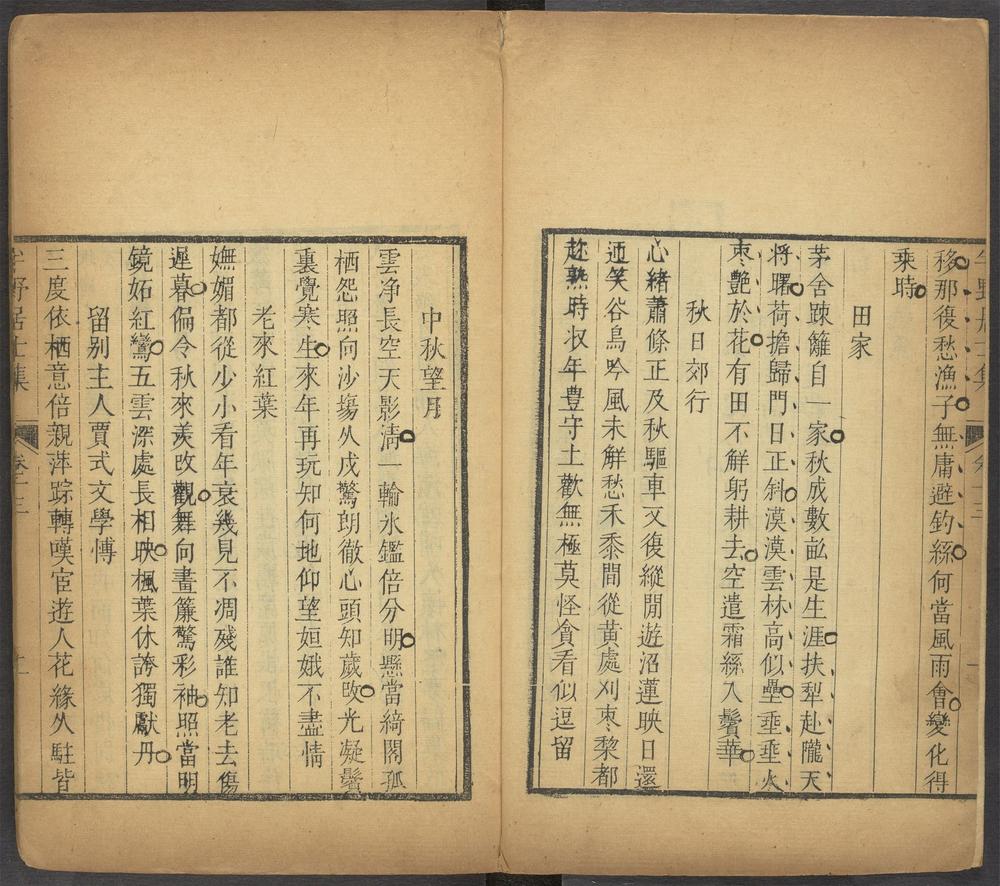 移那復愁漁子無庸避釣絲何當風雨會變化得
乘時
田家
茅舍踈籬自一家秋成數畝是生涯扶犁赴隴天
将曙荷擔歸門日正斜漠漠雲林高似壘垂垂火
枣艶於花有田不解躬耕去空遣霜絲入鬢華
秋日郊行
心緒蕭條正及秋驅車又復縱閒遊沼蓮映日還
迎笑谷鳥吟風未解愁禾黍間從黃處刈枣黎都
趂熟時収年豊守土歡無極莫怪貪看似逗留
中秋望月
雲净長空天影淸一輪氷鑑倍分明懸當綺閣孤
栖怨照向沙塲久戍驚朗徹心頭知歲攺光凝鬢
裏覺寒生來年再玩知何地仰望姮娥不盡情
老來紅葉
嫵媚都從少小看年衰幾見不凋殘誰知老去傷
遲暮偏令秋來羙攺觀舞向畫簾驚彩袖照當明
鏡妬紅鸞五雲深處長相映楓葉休誇獨獻丹
留别主人賈式文學愽
三度依栖意倍親萍踪轉嘆宦遊人花緣久駐皆
野居士集 卷十三